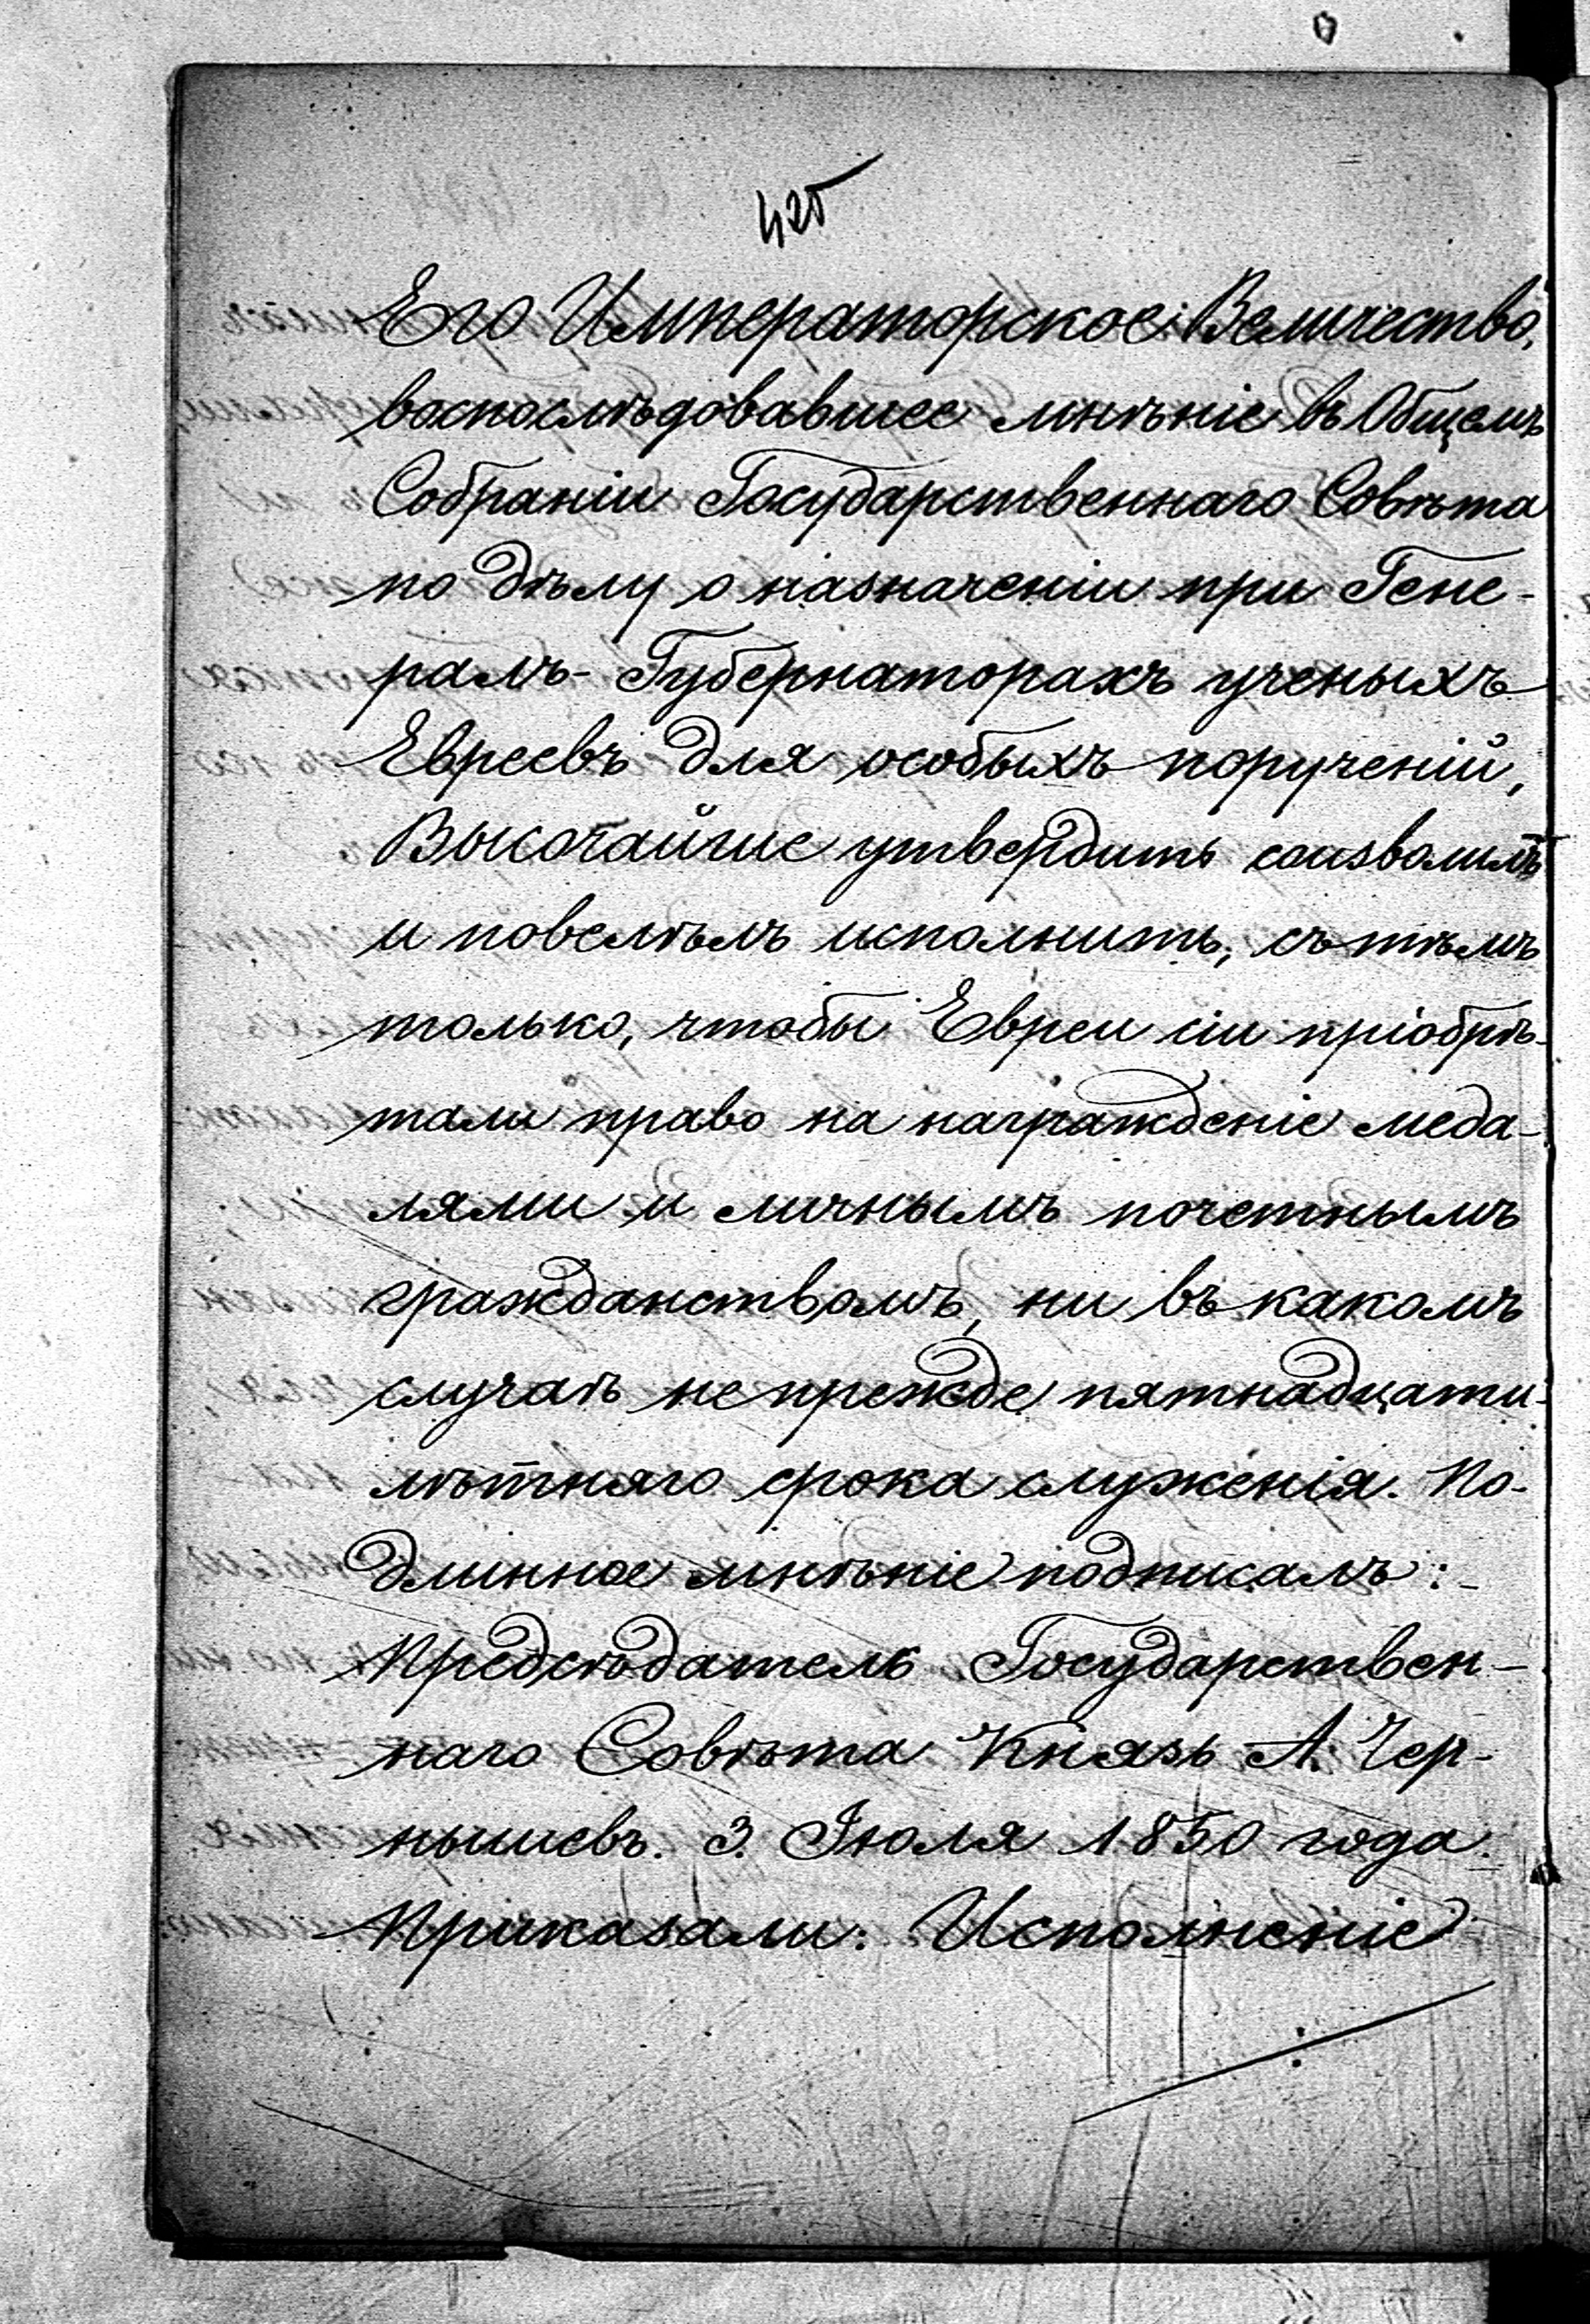 425
Его Императорское Величество,
воспослѣдовавшее мнѣніе въ Общемъ
Собраніи Государственнаго Совѣта
по дѣлу о назначеніи при Гене-
ралъ-Губернаторахъ ученыхъ
Евреевъ для особыхъ порученій,
Высочайше утвердить соизволилъ
и повелѣлъ исполнить, съ тѣмъ
только, чтобы Евреи сіи пріобрѣ-
тали право на награжденіе меда-
лями и личнымъ почетнымъ
гражданствомъ, ни въ какомъ
случаѣ не прежде пятнадцати-
лѣтняго срока служенія. По-
длинное мнѣніе подписалъ:-
Предсѣдатель Государствен-
наго Совѣта Князь А. Чер-
нышевъ. 3. Іюля 1850 года.
Приказали: Исполненіе